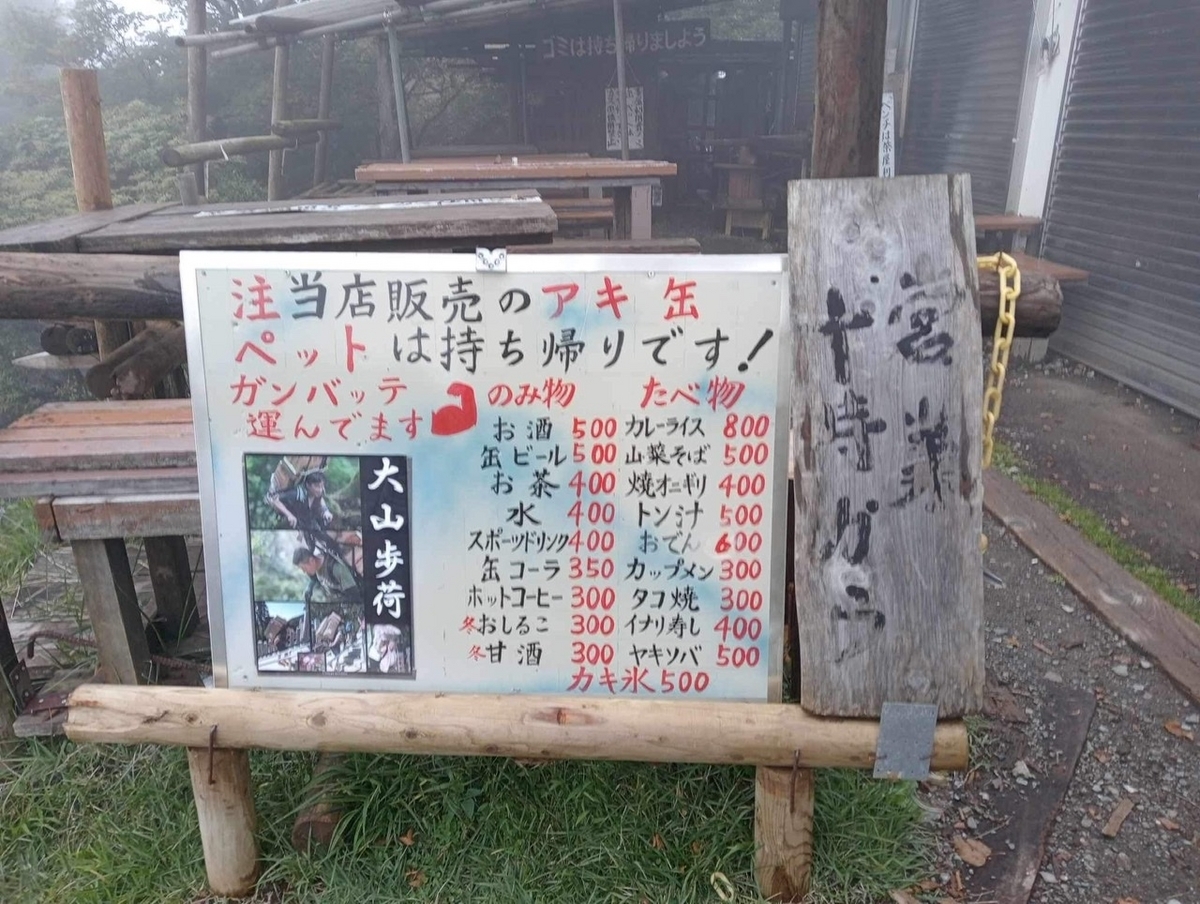 ゴミは持ち帰りましよう
注当店販売のアキ缶
ペットは持ち帰りです!
ガンバッテ
運んでます
大山歩荷
のみ物
お酒 500
缶ビール 500
お茶 400
水 400
スポーツドリンク 400
缶コーラ 350
ホットコーヒー 300
冬おしるこ 300
冬甘酒 300
たべ物
カレーライス 800
山菜そば 500
焼オニギリ 400
トン汁 500
おでん 600
カップメン 300
タコ焼 300
イナリ寿し 400
ヤキソバ 500
カキ氷 500
営業
十時から